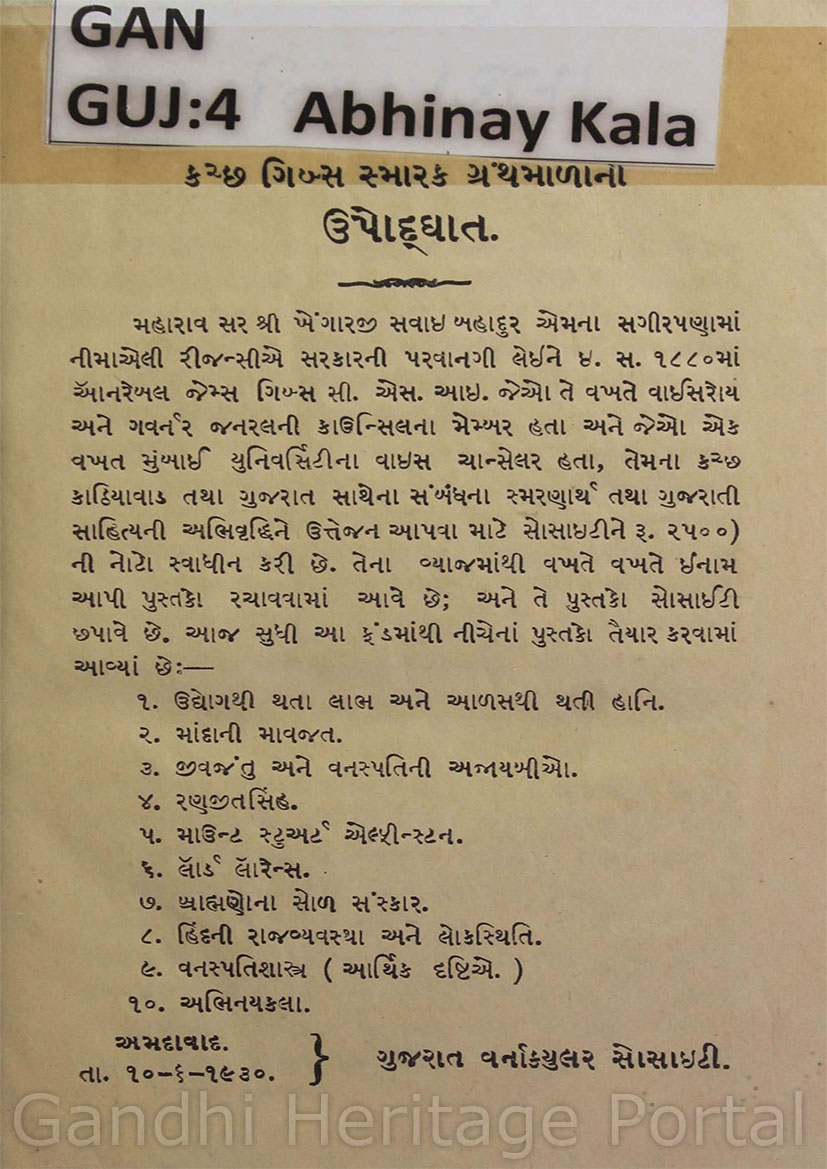 GAN
GUJ:4 Abhinay Kala
કચ્છ ગિબ્સ સ્મારક ગ્રંથમાળાનો
ઉપોદ્ઘાત.
મહારાવ સર શ્રી ખેંગારજી સવાઇ બહાદુર એમના સગીરપણામાં
નીમાએલી રીજન્સીએ સરકારની પરવાનગી લેઇને ઇ. સ. ૧૮૮૦માં
ઑનરેબલ જેમ્સ ગિબ્સ સી. એસ. આઇ. જેઓ તે વખતે વાઇસરોય
અને ગવર્નર જનરલની કાઉન્સિલના મેમ્બર હતા અને જેઓ એક
વખત મુંબાઈ યુનિવર્સિટીના વાઇસ ચાન્સેલર હતા, તેમના કચ્છ
કાઠિયાવાડ તથા ગુજરાત સાથેના સંબંધના સ્મરણાર્થ તથા ગુજરાતી
સાહિત્યની અભિવૃદ્ધિને ઉત્તેજન આપવા માટે સોસાઇટીને રૂ. ૨૫૦૦)
ની નોટો સ્વાધીન કરી છે. તેના વ્યાજમાંથી વખતે વખતે ઈનામ
આપી પુસ્તકો રચાવવામાં આવે છે; અને તે પુસ્તકો સોસાઈટી
છપાવે છે. આજ સુધી આ ફંડમાંથી નીચેનાં પુસ્તકો તૈયાર કરવામાં
આવ્યાં છેઃ—
૧. ઉદ્યોગથી થતા લાભ અને આળસથી થતી હાનિ.
૨. માંદાની માવજત.
૩. જીવજંતુ અને વનસ્પતિની અજાયબીઓ.
૪. રણજીતસિંહ.
૫. માઉન્ટ સ્ટુઅર્ટ એલ્ફીન્સ્ટન.
૬. લૉર્ડ લૉરેન્સ.
૭. બ્રાહ્મણોના સોળ સંસ્કાર.
૮. હિંદની રાજવ્યવસ્થા અને લોકસ્થિતિ.
૯. વનસ્પતિશાસ્ત્ર ( આર્થિક દૃષ્ટિએ. )
૧૦. અભિનયકલા.
અમદાવાદ.
તા. ૧૦-૬-૧૯૩૦. } ગુજરાત વર્નાક્યુલર સોસાઇટી.
Gandhi Heritage Portal